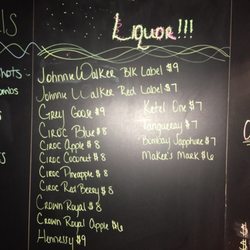 LS
Liquor!!!
Johnnie Walker Blk Label $9
Johnnie Walker Red Label $7
Grey Goose $9
Ciroc Blue $8
Ciroc Apple $8
Ciroc Coconut $8
Ciroc Pineapple $8
Ciroc Red Berry $8
Crown Royal $8
Crown Royal Apple $6
Hennessy $9
Ketel One $7
Tanqueray $7
Bombay Sapphire $7
Maker's Mark $6
Shots -
ombs